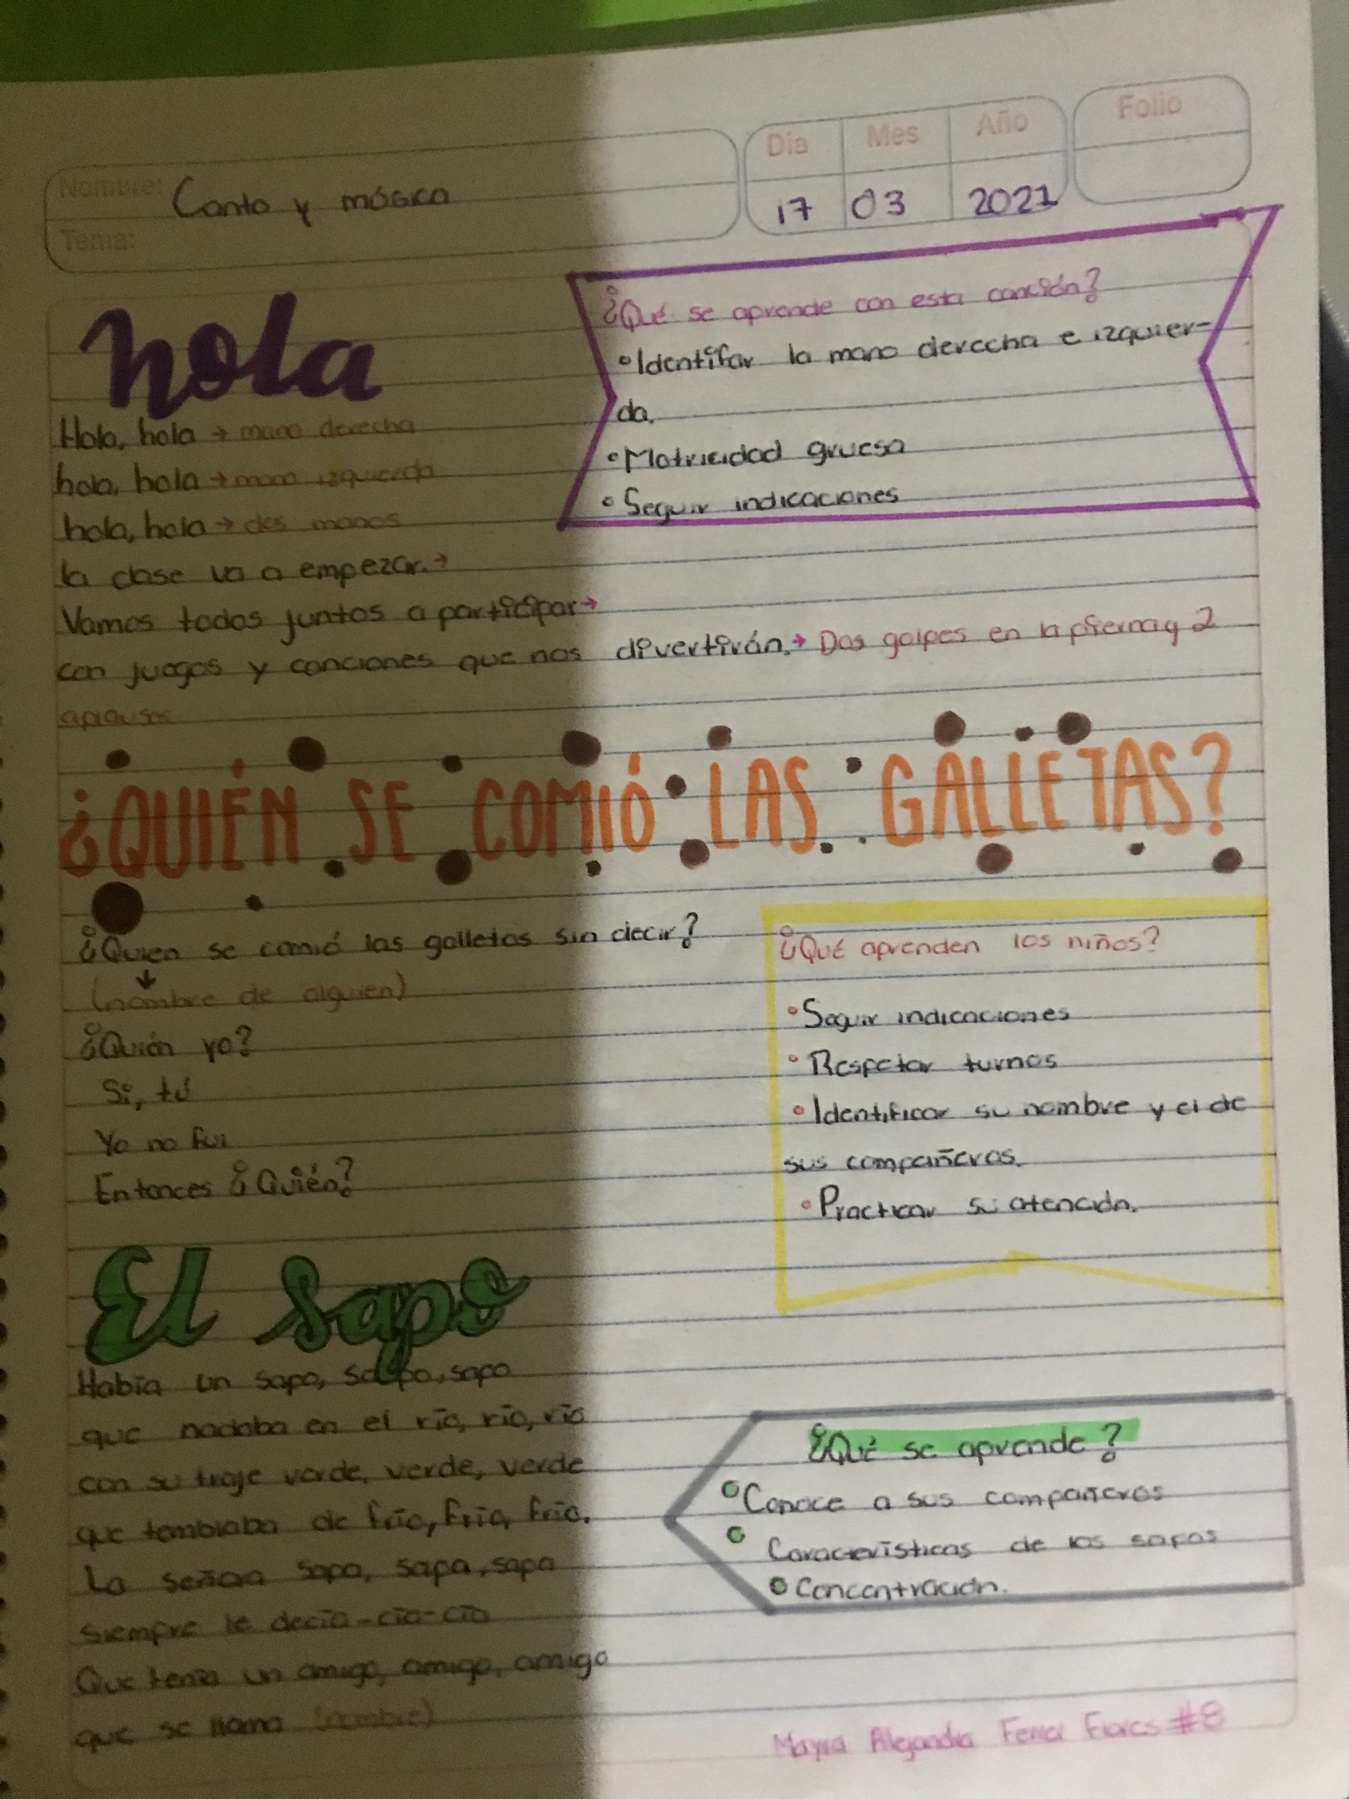 Día Mes Año Folio
Nombre: Canto y música
17 03 2021
Tema:
hola
Hola, hola → mano derecha
hola, hola → mano izquierda
hola, hola → dos manos
la clase va a empezar. →
Vamos todos juntos a participar →
con juegos y canciones que nos divertirán. → Dos golpes en la pierna y 2
aplausos
¿Qué se aprende con esta canción?
• Identifar la mano derecha e izquier-
da.
• Motricidad gruesa
• Seguir indicaciones
¿QUIÉN SE COMIÓ LAS GALLETAS?
¿Quien se comió las galletas sin decir?
↓
(nombre de alguien)
¿Quién yo?
Si, tú
Yo no fui
Entonces ¿Quién?
¿Qué aprenden los niños?
• Seguir indicaciones
• Respetar turnos
• Identificar su nombre y el de
sus compañeros.
• Practicar su atención.
El Sapo
Había un sapo, sapo, sapo
que nadaba en el río, río, río
con su traje verde, verde, verde
que temblaba de frío, frío, frío.
La señora sapa, sapa, sapa
siempre le decía-cía-cía
Que tenía un amigo, amigo, amigo
que se llama (nombre)
¿Qué se aprende?
• Conoce a sus compañeros
• Características de los sapos
• Concentración.
Mayra Alejandra Ferrer Flores #8